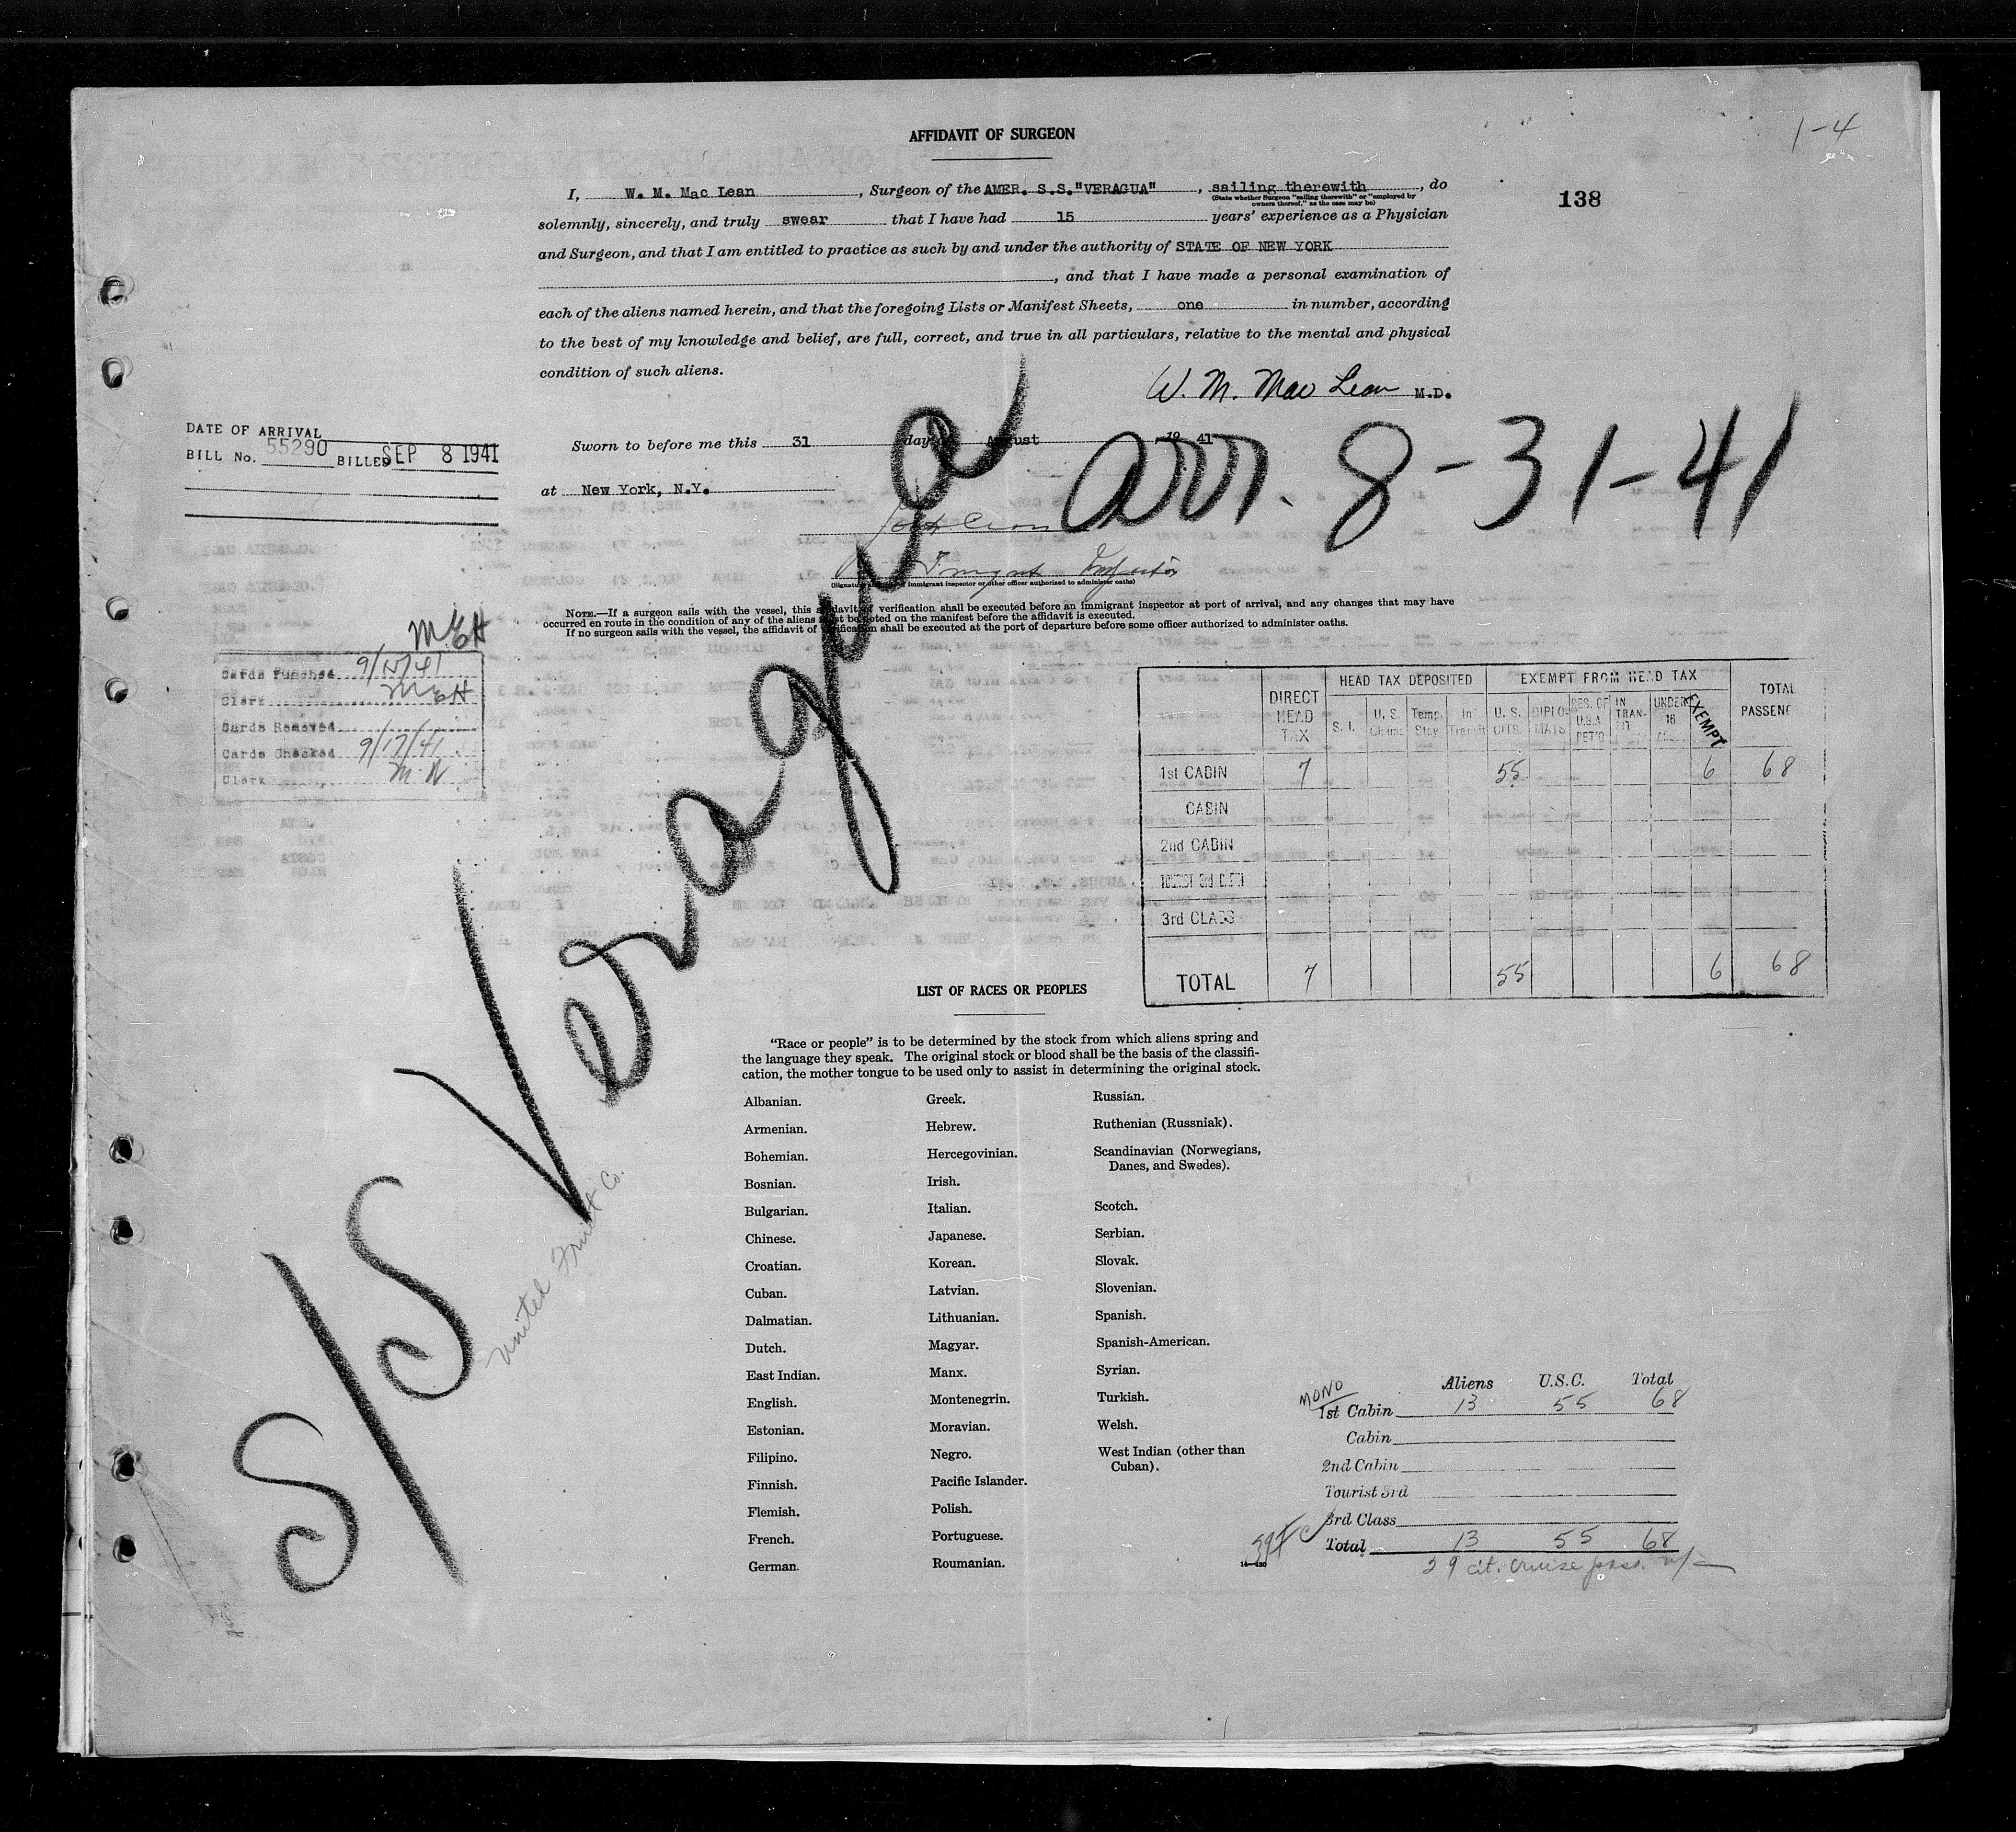 AFFIDAVIT OF SURGEON
1-4
138
I, W. M. Mac Lean, Surgeon of the AMER. S.S. "VERAGUA", sailing therewith, do
(State whether Surgeon "sailing therewith" or "employed by
owners thereof," as the case may be)
solemnly, sincerely, and truly swear that I have had 15 years' experience as a Physician
and Surgeon, and that I am entitled to practice as such by and under the authority of STATE OF NEW YORK
, and that I have made a personal examination of
each of the aliens named herein, and that the foregoing Lists or Manifest Sheets, one in number, according
to the best of my knowledge and belief, are full, correct, and true in all particulars, relative to the mental and physical
condition of such aliens.
W. M. Mac Lean M.D.
DATE OF ARRIVAL
BILL No. 55290 BILLED SEP 8 1941
Sworn to before me this 31 day of August, 19 41
at New York, N.Y.
arr. 8-31-41
Immigrant Inspector
(Signature of immigrant inspector or other officer authorized to administer oaths)
NOTE.—If a surgeon sails with the vessel, this affidavit of verification shall be executed before an immigrant inspector at port of arrival, and any changes that may have
occurred en route in the condition of any of the aliens must be noted on the manifest before the affidavit is executed.
If no surgeon sails with the vessel, the affidavit of verification shall be executed at the port of departure before some officer authorized to administer oaths.
MEH
Cards Punched 9/15/41
Clerk MEH
Cards Removed
Cards Checked 9/17/41
Clerk
S/S Veragua
United Fruit Co.
HEAD TAX DEPOSITED EXEMPT FROM HEAD TAX
DIRECT HEAD TAX S. I. U. S. Claims Temp. Stay In Transit U. S. CITS. DIPLOMATS RES. OF U.S.A. RET'G IN TRANSIT UNDER 16 EXEMPT TOTAL PASSENG
1st CABIN 7 55 6 68
CABIN
2nd CABIN
TOURIST 3rd CABIN
3rd CLASS
TOTAL 7 55 6 68
LIST OF RACES OR PEOPLES
"Race or people" is to be determined by the stock from which aliens spring and
the language they speak. The original stock or blood shall be the basis of the classifi-
cation, the mother tongue to be used only to assist in determining the original stock.
Albanian.
Armenian.
Bohemian.
Bosnian.
Bulgarian.
Chinese.
Croatian.
Cuban.
Dalmatian.
Dutch.
East Indian.
English.
Estonian.
Filipino.
Finnish.
Flemish.
French.
German.
Greek.
Hebrew.
Hercegovinian.
Irish.
Italian.
Japanese.
Korean.
Latvian.
Lithuanian.
Magyar.
Manx.
Montenegrin.
Moravian.
Negro.
Pacific Islander.
Polish.
Portuguese.
Roumanian.
Russian.
Ruthenian (Russniak).
Scandinavian (Norwegians,
Danes, and Swedes).
Scotch.
Serbian.
Slovak.
Slovenian.
Spanish.
Spanish-American.
Syrian.
Turkish.
Welsh.
West Indian (other than
Cuban).
Aliens U.S.C. Total
MONO
1st Cabin 13 55 68
Cabin
2nd Cabin
Tourist 3rd
3rd Class
Total 13 55 68
29 cit. cruise pass.